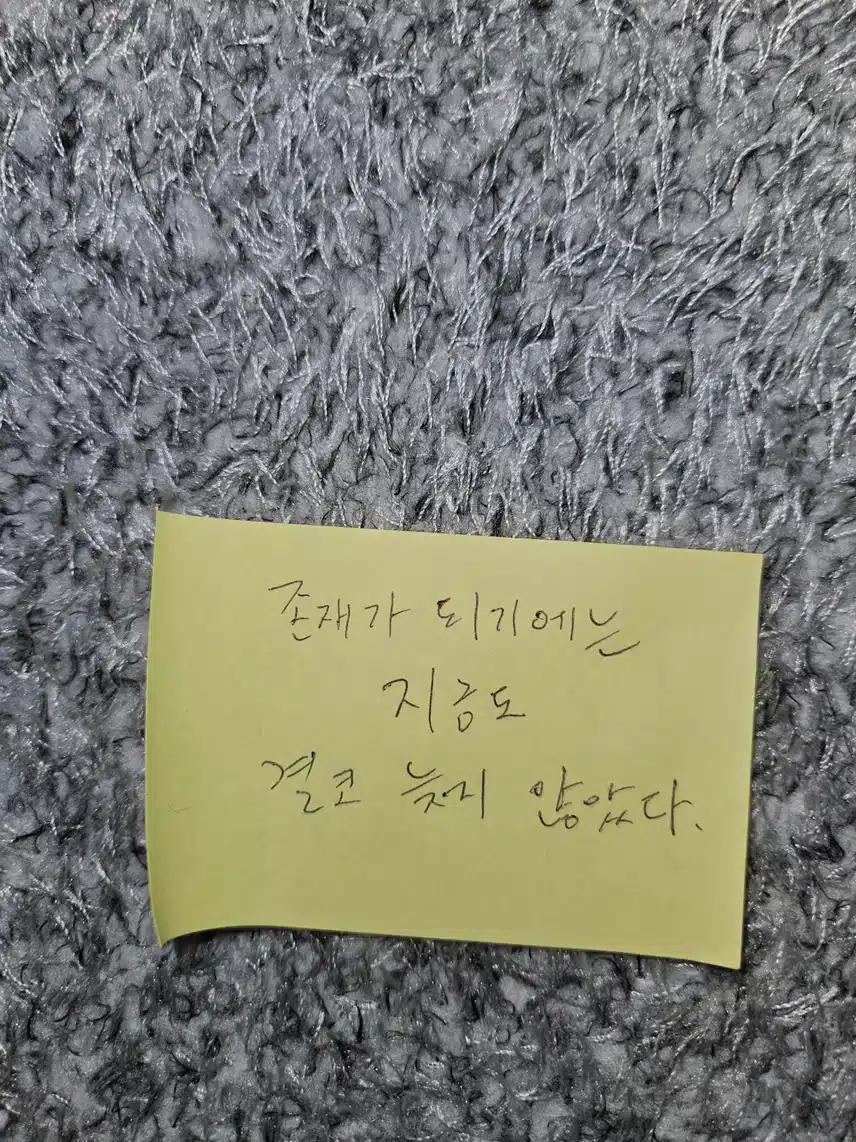 존재가 되기에는
지금도
결코 늦지 않았다.